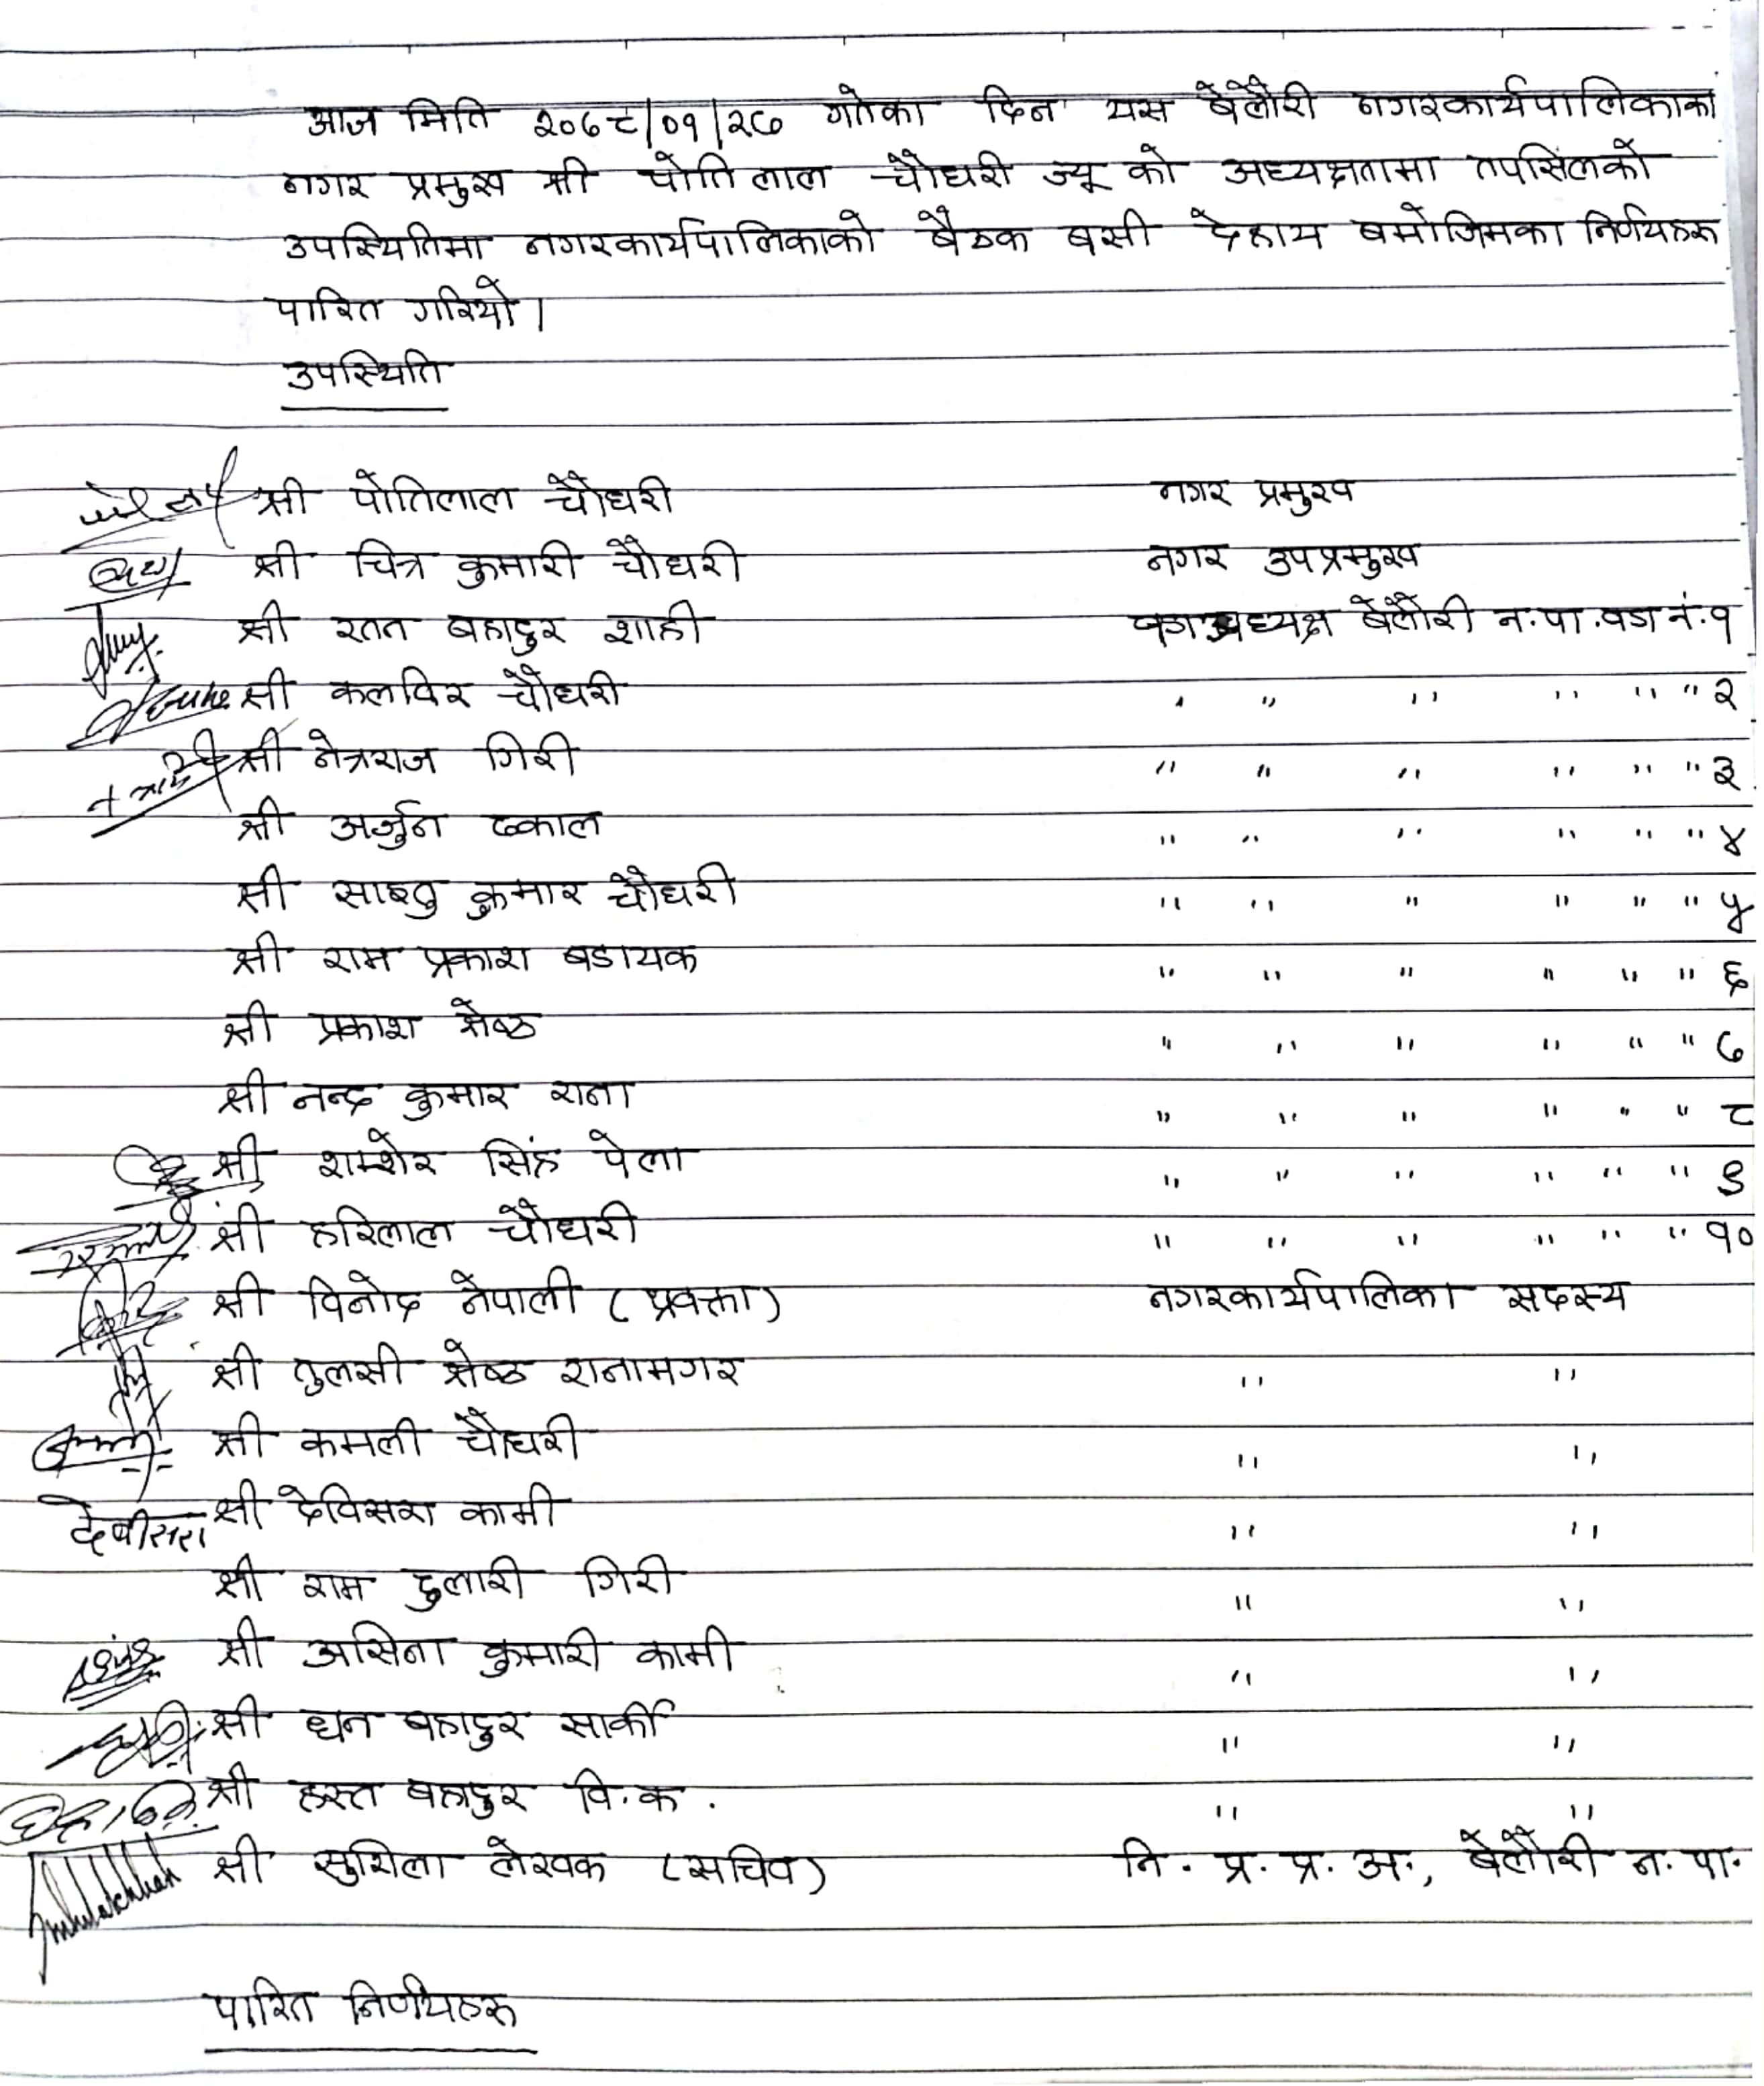 आज मिति २०७८/०१/२७ गतेका दिन यस बेलौरी नगरकार्यपालिकाका
नगर प्रमुख श्री पोतिलाल चौधरी ज्यू को अध्यक्षतामा तपसिलको
उपस्थितिमा नगरकार्यपालिकाको बैठक बसी देहाय बमोजिमका निर्णयहरू
पारित गरियो।
उपस्थिति
श्री पोतिलाल चौधरी नगर प्रमुख
श्री चित्र कुमारी चौधरी नगर उपप्रमुख
श्री रतन बहादुर शाही वडा अध्यक्ष बेलौरी न.पा.वडा नं.१
श्री कलविर चौधरी " " " " " " २
श्री नेत्रराज गिरी " " " " " " ३
श्री अर्जुन ढकाल " " " " " " ४
श्री कुमार चौधरी " " " " " " ५
श्री राम प्रकाश बडायक " " " " " " ६
श्री प्रकाश श्रेष्ठ " " " " " " ७
श्री नन्द्र कुमार राना " " " " " " ८
श्री शम्शेर सिंह पेला " " " " " " ९
श्री हरिलाल चौधरी " " " " " " १०
श्री विनोद नेपाली (प्रवक्ता) नगरकार्यपालिका सदस्य
श्री तुलसी श्रेष्ठ रानामगर " "
श्री कमली चौधरी " "
देवीसरा श्री देविसरा कामी " "
श्री राम दुलारी गिरी " "
श्री असिना कुमारी कामी " "
श्री धन बहादुर सार्की " "
श्री हस्त बहादुर वि.क. " "
श्री सुशिला लेखक (सचिव) नि. प्र. प्र. अ., बेलौरी न. पा.
पारित निर्णयहरू